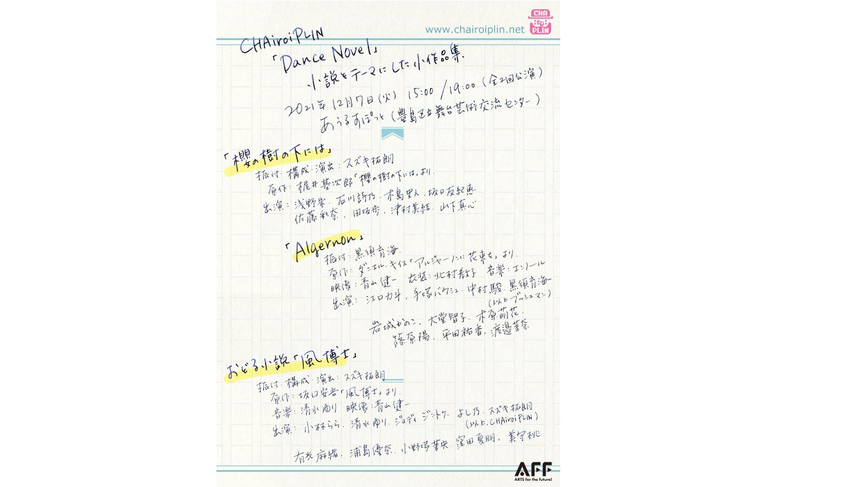 www.chairoiplin.net
CHA
iroi
PLIN
CHAiroiPLIN
「Dance Novel」
小説をテーマにした小作品集
2021年12月7日(火) 15:00/19:00(全2回公演)
あうるすぽっと(豊島区立舞台芸術交流センター)
「櫻の樹の下には」
振付・構成・演出:スズキ拓朗
原作:梶井基次郎「櫻の樹の下には」より
出演:浅野栞、石川詩乃、 坂口友紀恵
佐藤 田 津村美結、山下真心
「Algernon」
振付:黒須育海
原作:ダニエル・キイス「アルジャーノンに花束を」より
映像:青山健一 衣装:北村教子 音楽:
出演:江口力斗、手塚バウシュ、中村駿、黒須育海
(以上、ブッシュマン)
岩城かのこ、大堂智子、木原萌花
篠原陽、平田祐香、渡邉茉奈
おどる小説「風博士」
振付・構成・演出:スズキ拓朗
原作:坂口安吾「風博士」より
音楽:清水ゆり 映像:青山健一
出演:小林らら、清水ゆり、ジョディ、ジントク、よし乃、スズキ拓朗
(以上、CHAiroiPLIN)
浦島優奈、小野塚茉央、窪田夏朋、
AFF
ARTS for the future!